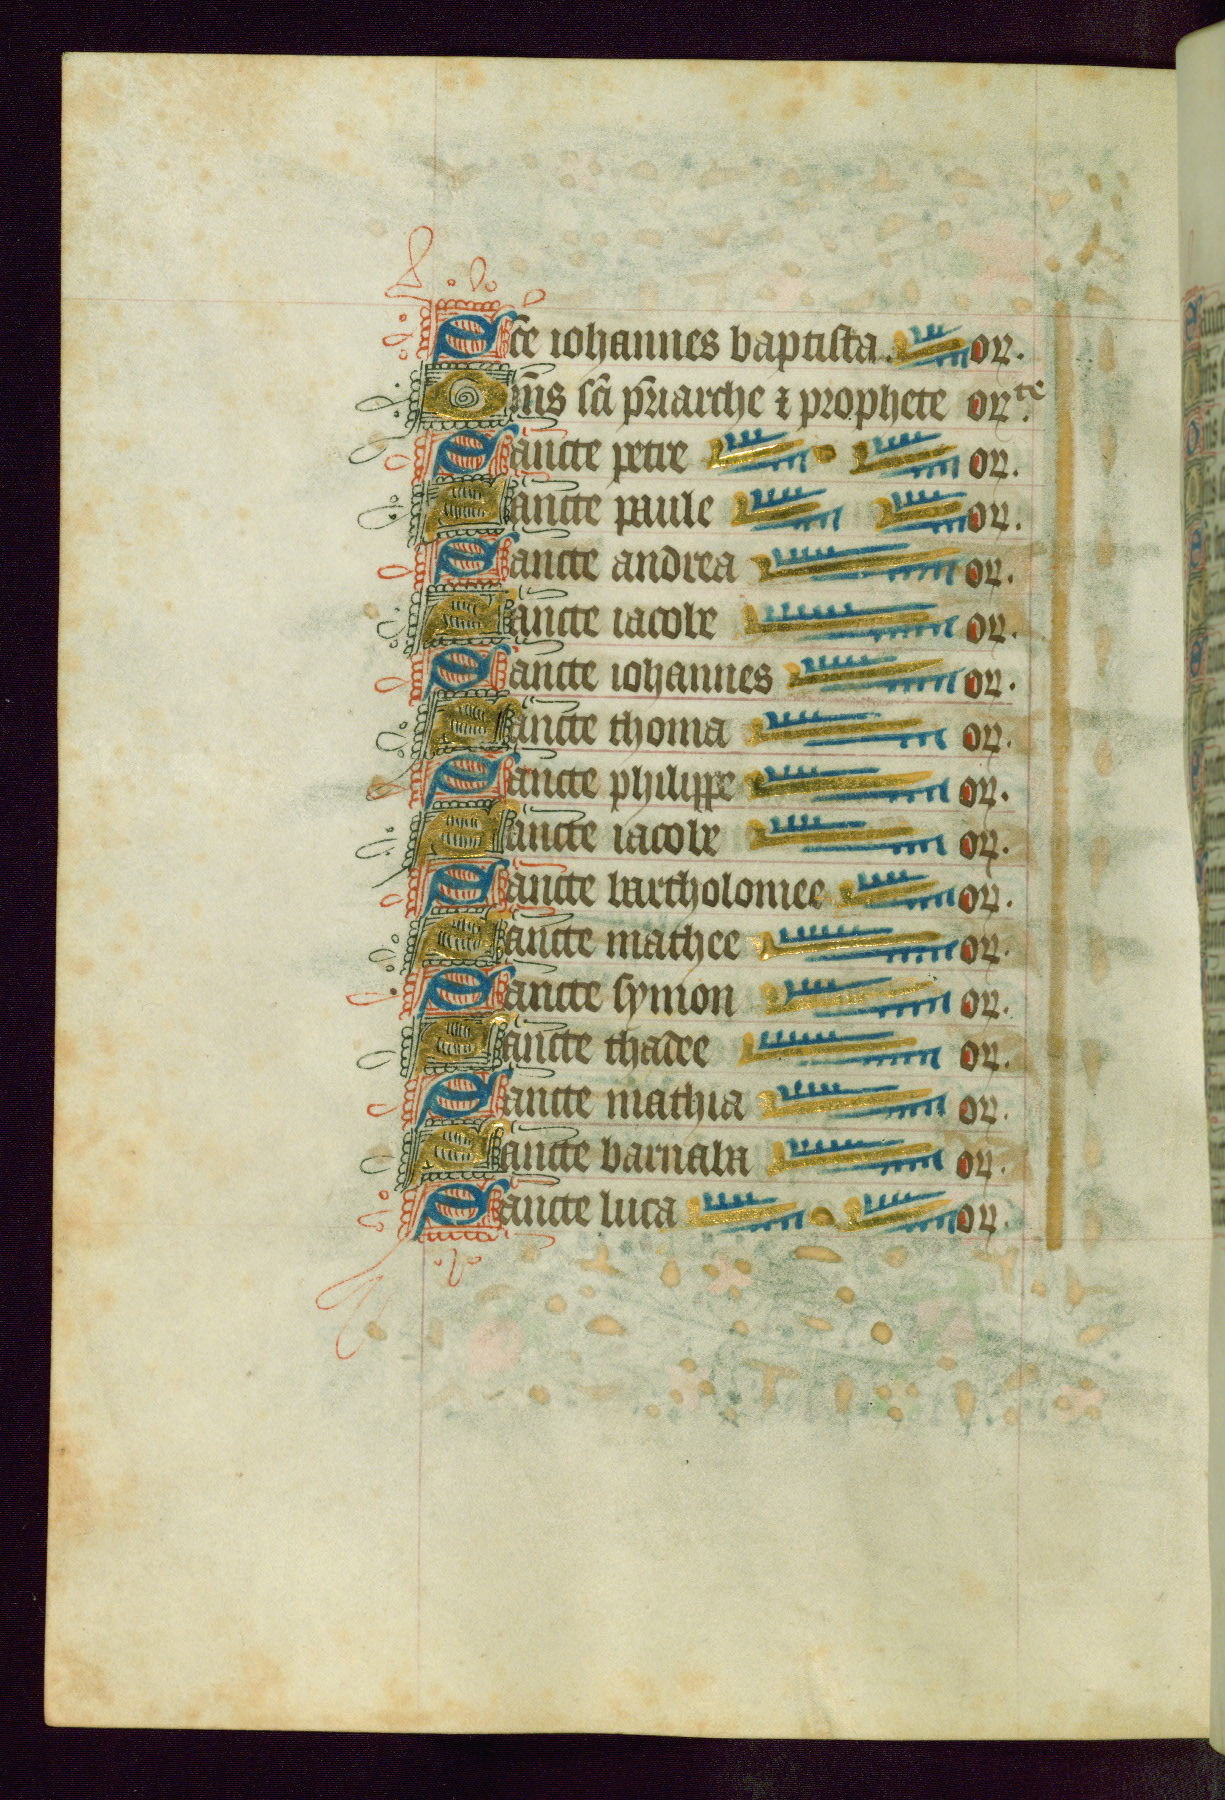 Sc̄e iohannes baptista. or.
Om̄s sc̄i pr̄iarche ⁊ prophete or.te
Sancte petre or.
Sancte paule or.
Sancte andrea or.
Sancte iacobe or.
Sancte iohannes or.
Sancte thoma or.
Sancte philippe or.
Sancte iacobe or.
Sancte bartholomee or.
Sancte mathee or.
Sancte symon or.
Sancte thadee or.
Sancte mathia or.
Sancte barnaba or.
Sancte luca or.